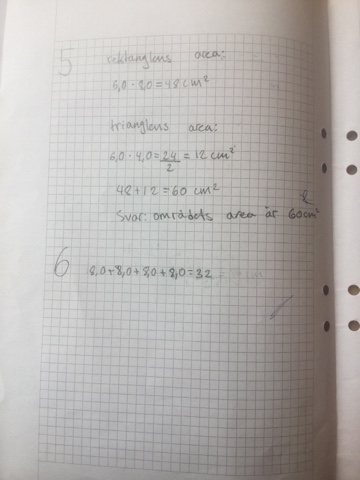 5 rektanglens area:
6,0 · 8,0 = 48 cm²
trianglens area:
6,0 · 4,0 = 24/2 = 12 cm²
48 + 12 = 60 cm²
Svar: områdets area är 60 cm²
6 8,0 + 8,0 + 8,0 + 8,0 = 32